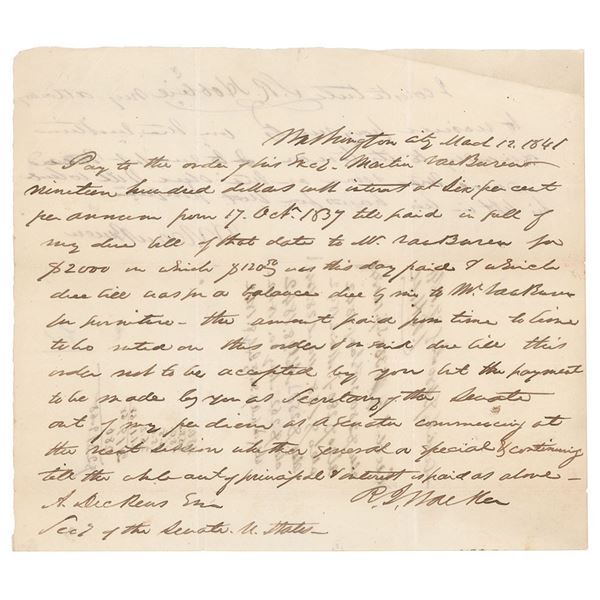 Washington City March 12. 1841
Pay to the order of his Exc. Martin Van Buren
nineteen hundred dollars with interest at six per cent
per annum from 17. Octr. 1837 till paid in full of
my due bill of that date to Mr. Van Buren for
$2000 on which $120 was this day paid & which
due bill was for a balance due by me to Mr. Van Buren
for furniture — the amount paid from time to time
to be noted on this order & on said due bill this
order not to be accepted by you but the payment
to be made by you as Secretary of the Senate
out of my per diem as a Senator commencing at
the next session whether general or special & continuing
till the whole amt of principal & interest is paid as above —
A. Dickens Esq R. J. Walker
Secy of the Senate U. States —